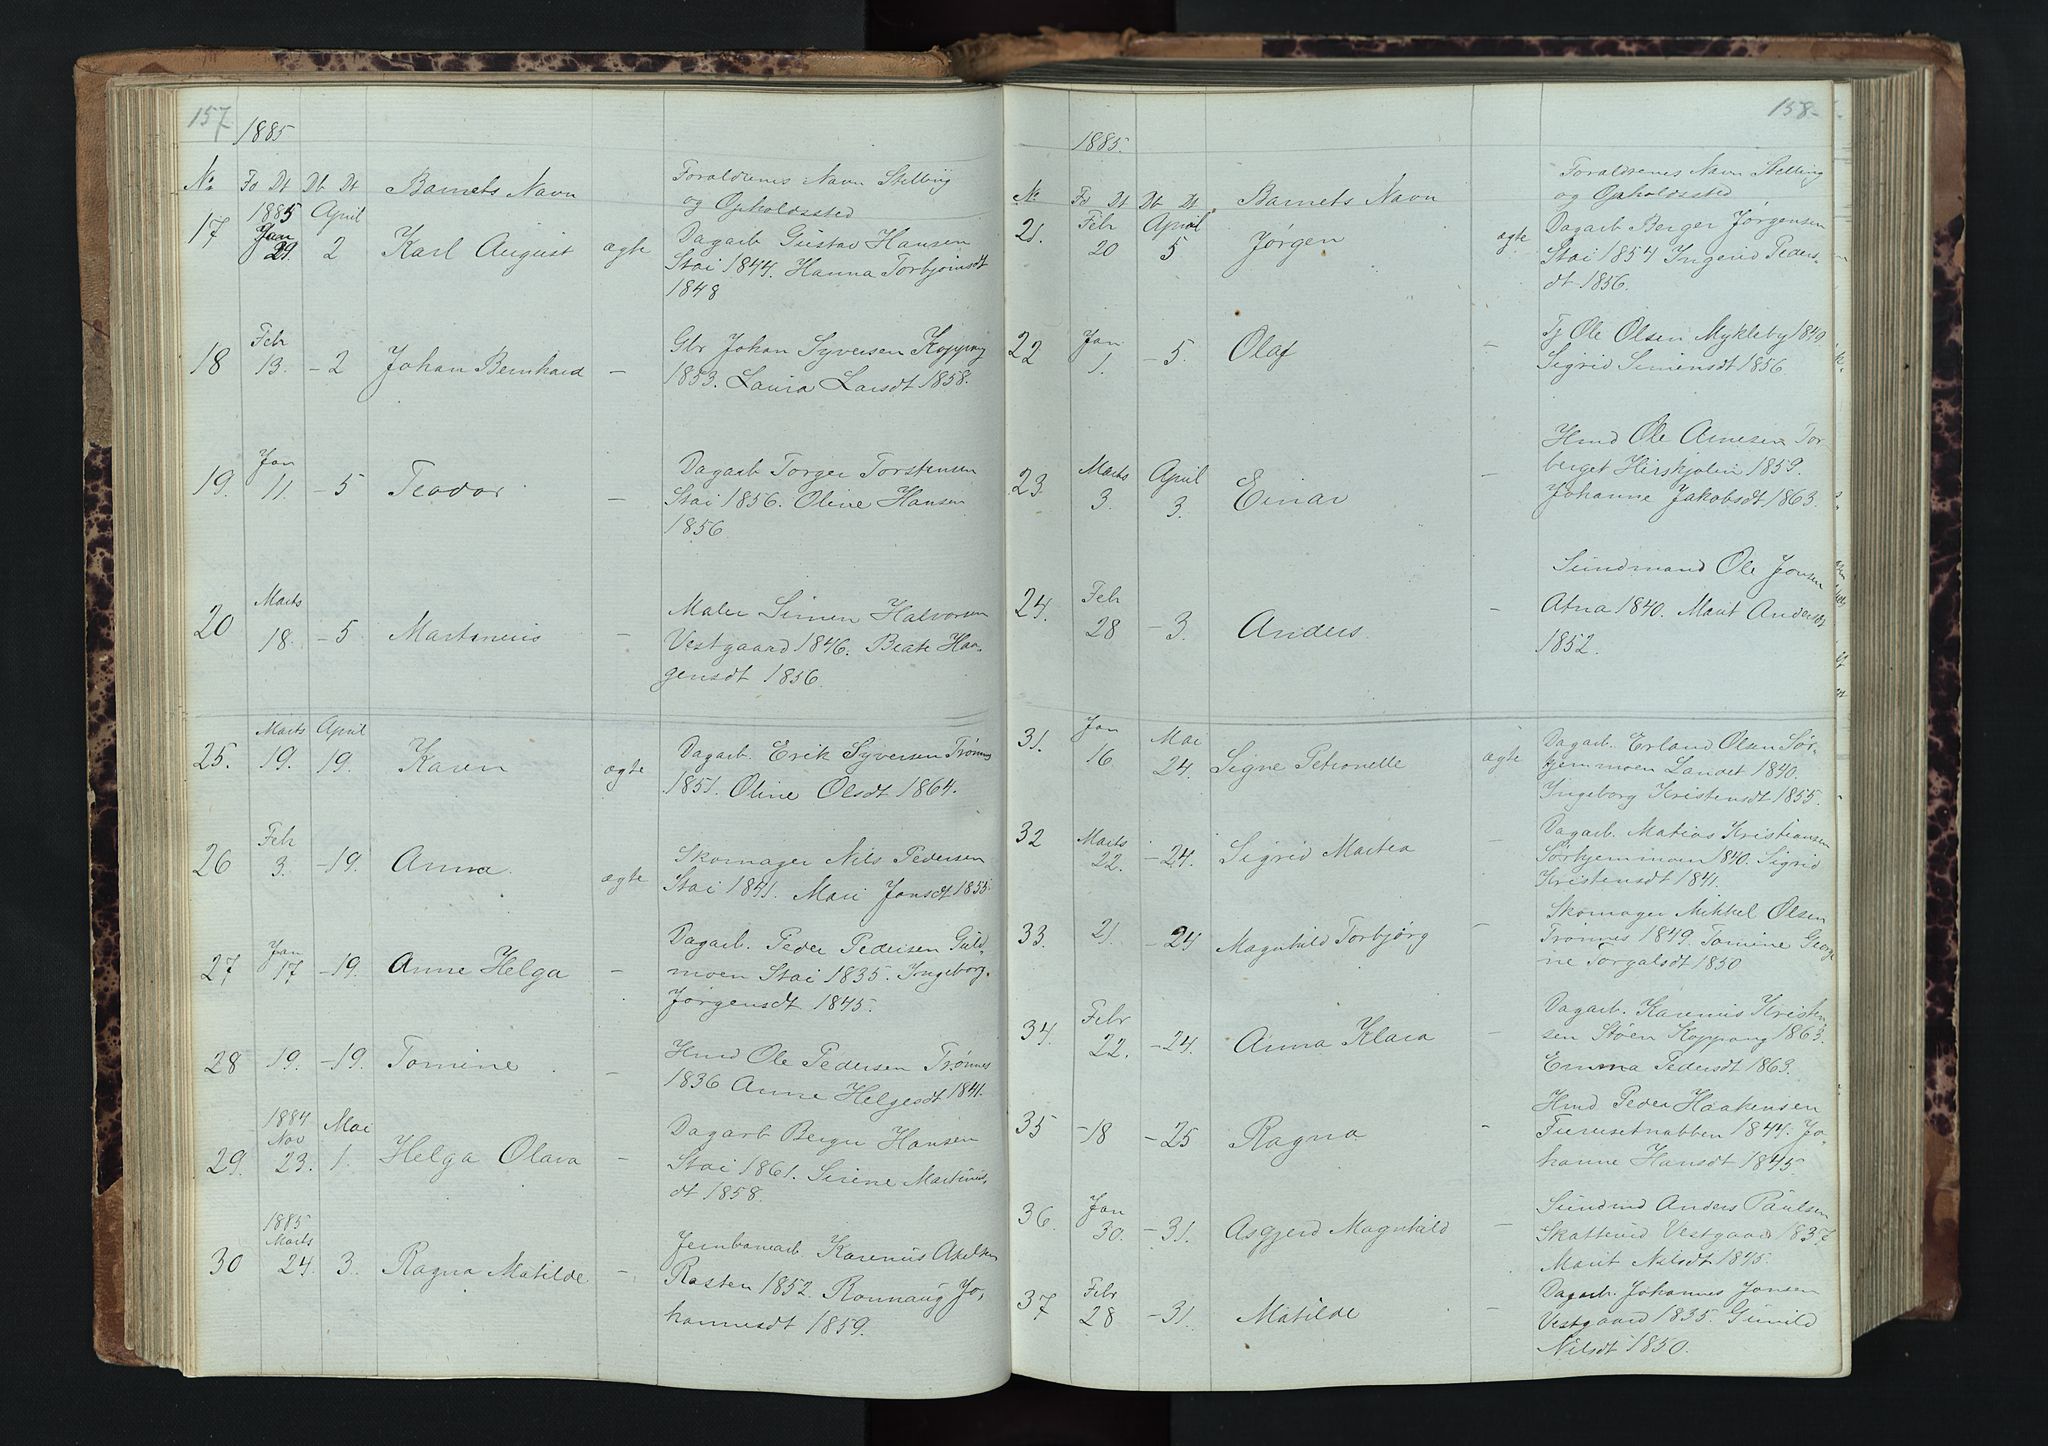 157
1885
No Fd Dt Db Dt Barnets Navn Foraldrenes Navn Stelling
og Opholdssted
17 1885 Jan 29. April 2 Karl August ægte Dagarb Gustav Hansen
Stai 1844. Hanna Torbjörnsdt
1848
18 Febr 13. - 2 Johan Bernhard - Gbr Johan Syversen Koppang
1853. Laura Larsdt 1858.
19. Jan 11. - 5 Teodor - Dagarb Torger Torstensen
Stai 1856. Oline Hansen
1856
20 Marts 18. - 5 Martinius - Maler Simen Halvorsen
Vestgaard 1846. Beate Haa-
gensdt 1856.
25. Marts 19. April 19. Karen ægte Dagarb. Erik Syversen Trönnes
1851. Oline Olsdt 1864.
26 Febr 3. - 19. Anna. ægte Skomager Nils Pedersen
Stai 1841. Mari Jonsdt 1855
27 Jan 17 - 19. Anne Helga - Dagarb. Peder Pedersen Guld-
moen Stai 1835. Ingeborg
Jørgensdt 1845.
28 19. - 19. Tomine - Hmd Ole Pedersen Trønnes
1836 Anne Helgesdt 1841.
29. 1884 Nov 23. Mai 1. Helga Olava - Dagarb Berger Hansen
Stai 1861. Sirine Martinus-
dt 1858.
30 1885 Marts 24. 3. Ragna Matilde - Jernbanearb. Karenus Axelsen
Rasten 1852. Ronnaug Jo-
hannesdt 1859.
158
1885.
No Fd Dt Db Dt Barnets Navn Foraldrenes Navn Stelling
og Opholdssted
21. Febr 20 April 5 Jørgen ægte Dagarb Berger Jørgensen
Stai 1854 Ingerid Peders-
dt 1856.
22 Jan 1. - 5. Olaf - Tj Ole Olsen Mykleby 1849
Sigrid Simensdt 1856
23. Marts 3. April 3. Einar - Hmd Ole Arnesen Tor-
berget Hirskjølen 1859.
Johanne Jakobsdt 1863.
24. Febr 28 - 3. Anders. - Sundmand Ole Jonsen
Atna 1840. Marit Andersdt
1852.
31. Jan 16. Mai 24. Signe Petronelle ægte Dagarb. Erland Olsen Sör-
hjemmoen Landet 1840.
Ingeborg Kristensdt 1855.
32 Marts 22. - 24. Sigrid Martea - Dagarb. Matias Kristiansen
Sørhjemmoen 1840. Sigrid
Kristensdt 1841.
33. 21. - 24 Magnhild Torbjørg - Skomager Mikkel Olsen
Trønnes 1849. Tomine George
ne Torgalsdt 1850
34. Febr 22. - 24. Anna Klara - Dagarb. Karenus Kristen-
sen Støen Koppang 1863.
Emma Pedersdt 1863.
35 - 18 - 25 Ragna - Hmd Peder Haakensen
Furusetnabben 1844. Jo-
hanne Hansdt 1845.
36. Jan 30. - 31. Asgjerd Magnhild - Sundmd Anders Paulsen
Vestgaard 1837
Marit Nilsdt 1845.
37 Febr 28 - 31. Matilde - Dagarb. Johannes Jonsen
Vestgaard 1835. Gunild
Nilsdt 1850.